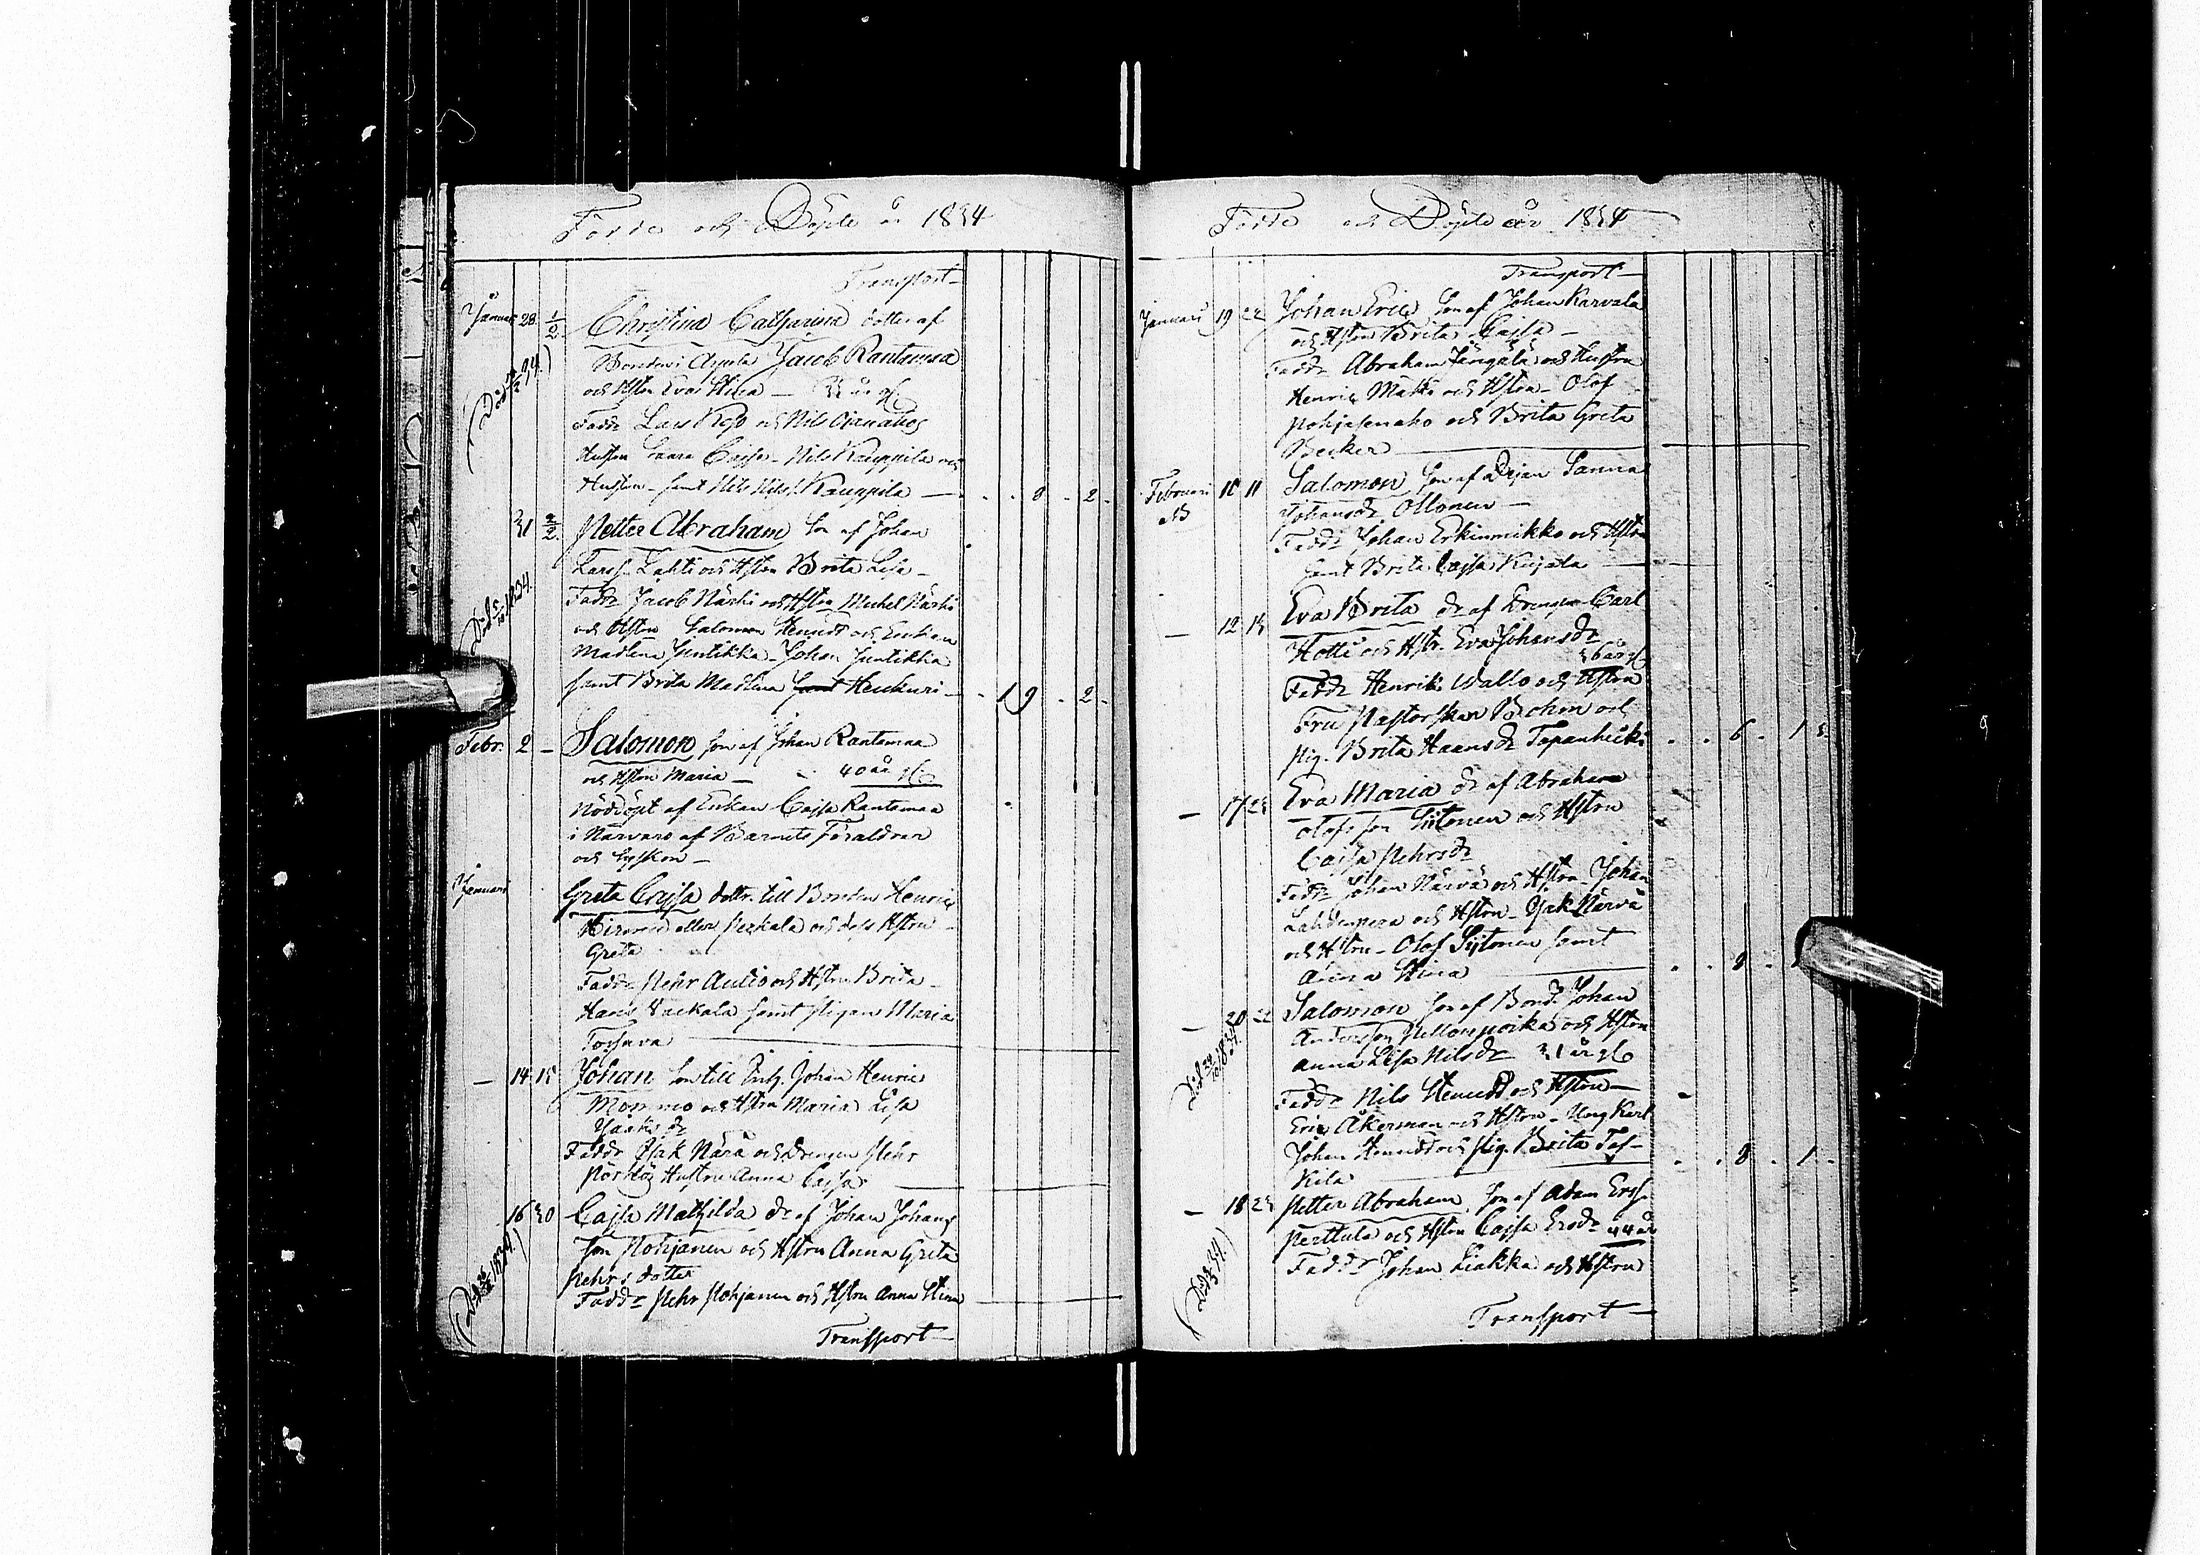 Födde och Döpte år 1834
Transport
Januari 28 1/2 Christina Catharina dotter af
Bonden i Jacob Rantamaa
och Hstru Eva Stina — 33 år gl
Faddr Lars och Nils
Hustru Caisa - Nils Kauppila och
Hustru - samt Nils Nilss. Kauppila — 8 - 2 -
31 2/2 Petter Abraham Son af Johan
Larss. Lahti och Hstru Brita Lisa -
Faddr Jacob Närhi och Hstru Michel Närhi
och Hstru Salomon och Enkan
Madlena Juntikka - Johan Juntikka
samt Brita Madlena samt - 19 - 2 -
Död 1834.
Febr. 2 - Salomon son af Johan Rantamaa
och Hstru Maria — 40 år gl
Nöddöpt af Enkan Caisa Rantamaa
i Närvaro af Barnets Föräldrar
och Syskon —
Januari
Greta Caisa dotter till Bonden Henric
eller Perkala och dess Hstru
Greta
Faddr Pehr Autio och Hstru Brita -
Hans samt Pigan Maria
— 14 15 Johan Son till Johan Henric
Mommo och Hstru Maria Lisa
Faddr Isak Närä och Drengen Pehr
Hustru Anna Caisa
16 30 Cajsa Mathilda dr af Johan Johans
son Pohjanen och Hstru Anna Greta
Pehrs dotter
Faddr Pehr Pohjanen och Hstru Anna Stina
Transport —
Födde och Döpte år 1834
Transport —
Januari 19 22 Johan Eric Son af Johan Karvala
och Hstru Brita Cajsa —
Faddr Abraham och Hustru
Henric Mäki och Hstru - Olof
Pohjasenaho och Brita Greta
Becker
Februari 10 11 Salomon Son af Pijan Sanna
Johansdr Ollonen —
Faddr Johan Erkinmikko och Hstru
samt Brita Cajsa
— 12 13 Eva Brita dr af Drengen Carl
Hotti och Hstr. Eva Johansdr
36 år gl
Faddr Henrik Wallo och Hstru
Fru Pastorskan Bohm och
Pig. Brita Haansdr - - 6 - 1
— 17 23 Eva Maria dr af Abraham
Olofs son Siitonen och Hstru
Caisa Pehrsdr
Faddr Johan Närvä och Hstru - Johan
Lahdenpera och Hstru - Isak Närvä
och Hstru - Olof Siitonen samt
Anna Stina - - 8 -
— 20 22 Salomon Son af Bond. Johan
Andersson och Hstru
Anna Lisa Nilsdr 31 år gl
Död 1834.
Faddr Nils och Hstru —
Eric Åkerman och Hstru - Ung Karl
Johan och Pig. Brita Tas-
kila - - 8 - 1 -
— 18 23 Petter Abraham, Son af Adam Erss.
Perttula och Hstru Cajsa Ersdr 44 år
Faddr Johan Liakka och Hstru
Transport —